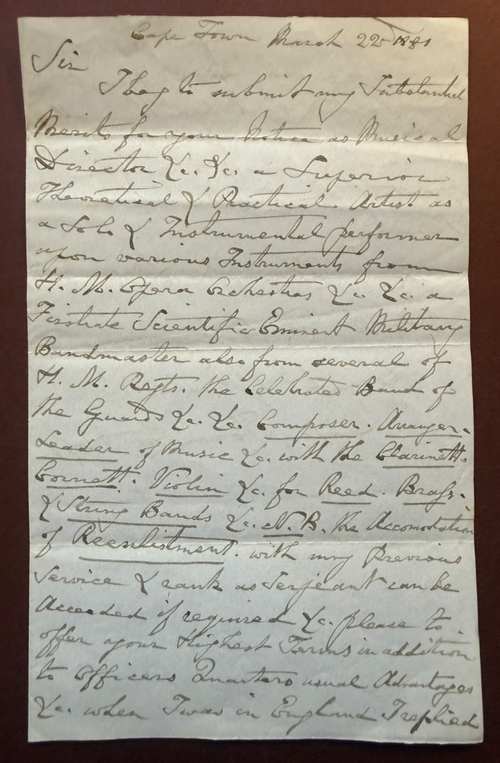 Cape Town March 22nd 1881
Sir
I beg to submit my Substantial
Merits for your Notice as Musical
Director &c. &c. a Superior
Theoretical & Practical Artist as
a Solo & Instrumental performer
upon various Instruments from
H. M. Opera Orchestras &c. &c. a
Firstrate Scientific Eminent Military
Bandmaster also from several of
H. M. Regts. the Celebrated Band of
the Guards &c. &c. Composer. Arranger.
Leader of Music &c. with the Clarinett.
Cornett. Violin &c. for Reed. Brass.
& String Bands &c. N.B. the Accomodation
of Reenlistment. with my Previous
Service & rank as Serjeant can be
Acceeded if required &c. please to
offer your Highest Terms in addition
to Officers Quarters usual Advantages
&c. when I was in England I replied